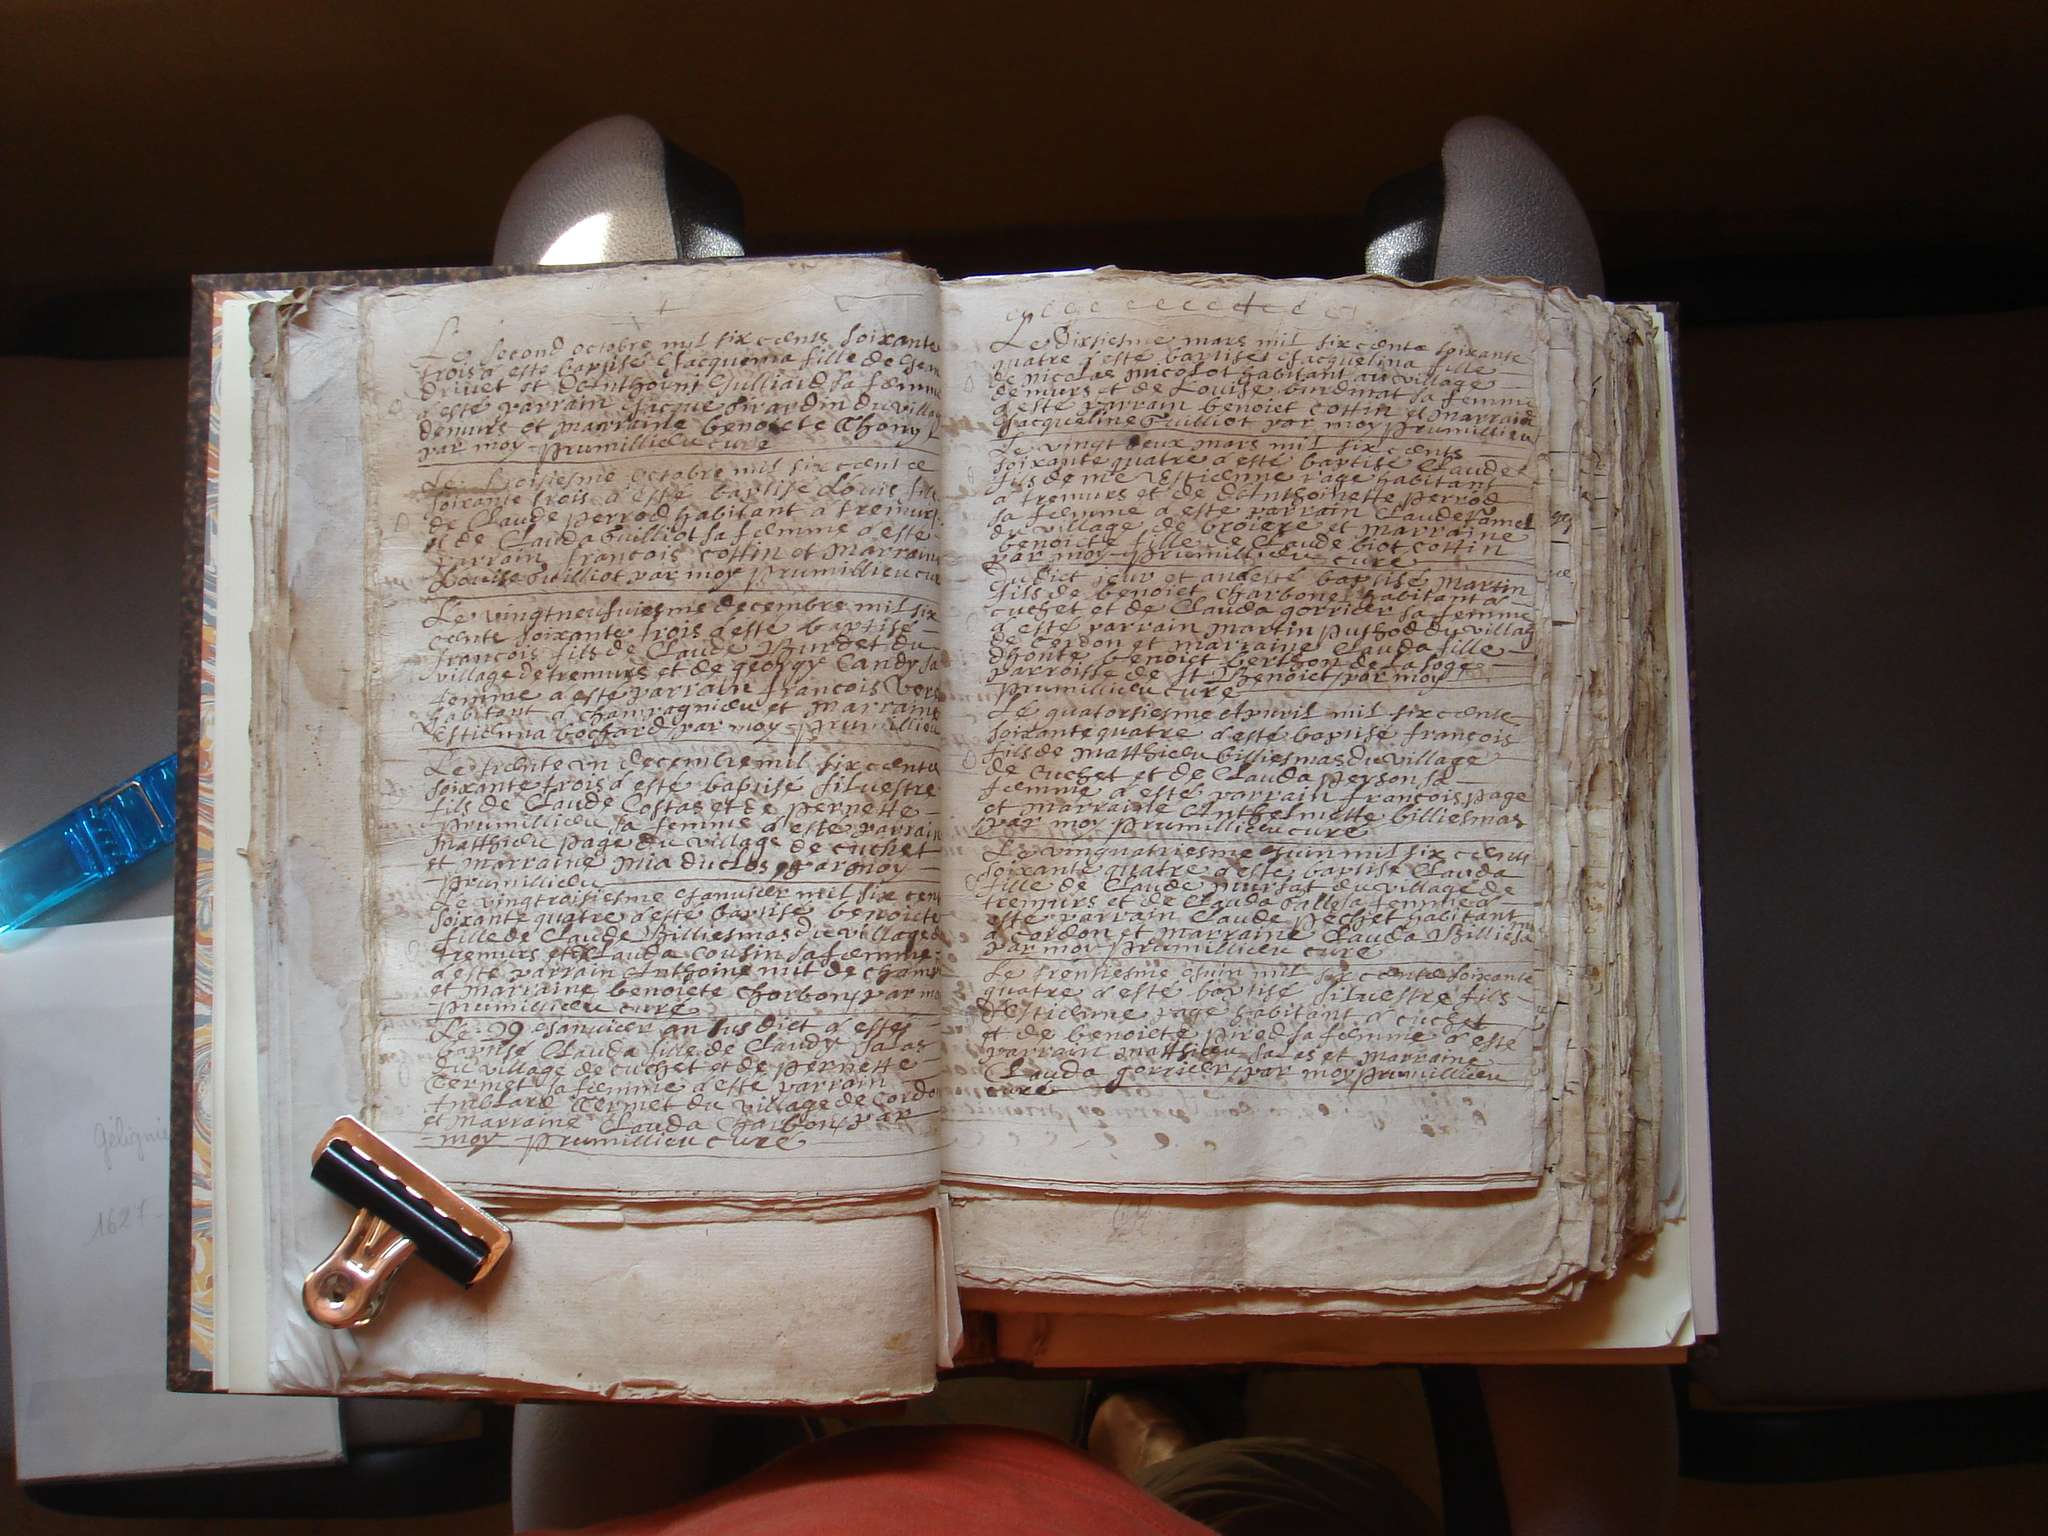 Le second octobre mil six cents soixante
trois a este baptise Jacquema fille de Jean
Drivet et d'Anthoine Julliard sa femme
a esté parrain Jacque Girardin du villag
demurs et marraine benoicte Thony
par moy Prumillieu curé
Le troisiesme octobre mil six cent
soixante trois a este baptise Louis fils
de Claude perrod habitant a tremurs
et de Clauda Guilliot sa femme a este
parrain francois Cottin et marraine
Louise Guilliot par moy Prumillieu cur
Le vingt neufuiesme decembre mil six
cents soixante trois a esté baptisé
francois fils de Claude Burdet du
village de tremurs et de george Candy sa
femme a esté parrain francois Vers
habitant a champagnieu et marraine
estienna bochard par moy Prumillieu
Le trente un decembre mil six cents
soixante trois a esté baptisé siluestre
fils de Claude Costas et de pernette
Prumillieu sa femme a este parrain
matthieu page du village de cuchet
et marraine mia duclos par moy
Prumillieu
Le vingtroisiesme Janvier mil six cent
soixante quatre a este baptise benoicte
fille de Claude Billiesmas du village de
tremurs et de Clauda cousin sa femme
a este parrain Anthoine nuit de cham
et marraine benoicte Charbon par mo
Prumillieu curé
Le 29 Janvier an susdict a estes
baptise Clauda fille de Claudy salas
du village de cuchet et de pernette
Termet sa femme a este parrain
Amblard Termet du village de Cordo
et marraine Clauda Charbon par
moy Prumillieu curé
Le Dixsiesme mars mil six cents soixante
quatre a esté baptise Jacquelina fille
de nicolas micolot habitant au village
demurs et de Louise burdinat sa femme
a este parrain benoict cottin et marraine
Jacqueline Guilliot par moy Prumillieu
Le vingt deux mars mil six cents
soixante quatre a esté baptisé Claude
fils de me Estienne page habitant
a tremurs et de d'Anthoinette perrod
sa femme a este parrain Claude Famel
du village de broiere et marraine
benoicte fille de Claude biot cottin
par moy Prumillieu curé
Du dict jour et an a esté baptisé martin
fils de benoict Charbonel habitant a
cuchet et de Clauda gorrier sa femme
a esté parrain martin puthod du villag
de Cordon et marraine Clauda fille
d'honte benoict berthon de la loge
parroisse de St Benoict par moy
Prumillieu curé
Le quatorsiesme Apuril mil six cents
soixante quatre a esté baptisé françois
fils de matthieu billiesmas du village
de cuchet et de Clauda person sa
femme a este parrain françois page
et marraine Anthelmette billiesmas
par moy Prumillieu curé
Le vinquatriesme Juin mil six cents
soixante quatre a este baptise Clauda
fille de Claude mursat du village de
tremurs et de Clauda balle sa femme a
este parrain Claude pechet habitant
a Cordon et marraine Clauda Billiesmas
par moy Prumillieu curé
Le trentiesme Juin mil six cents soixante
quatre a esté baptisé siluestre fils
d'Estienne page habitant a cuchet
et de benoicte pired sa femme a este
parrain matthieu salas et marraine
Clauda gorrier par moy Prumillieu
curé
1627-